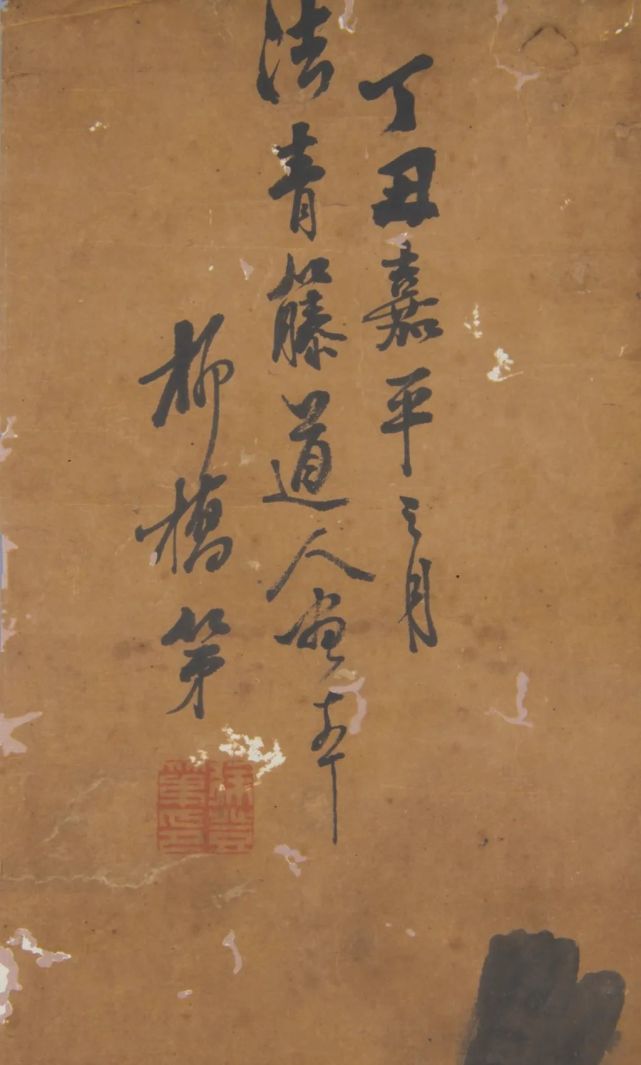 丁丑嘉平之月
法青藤道人畫本
柳橋第